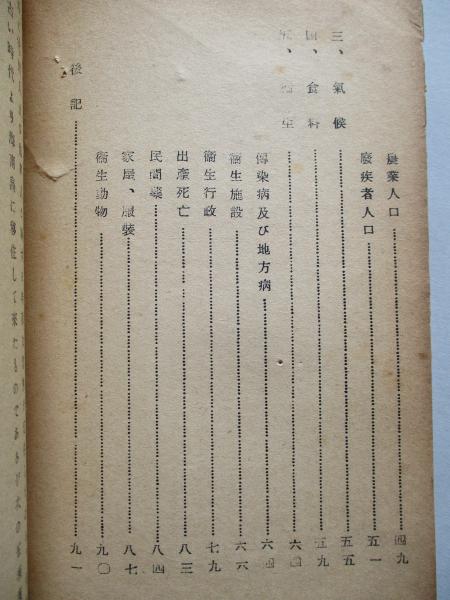 農業人口……四九
廢疾者人口……五一
三、氣候……五五
四、食料……五九
五、衞生……六四
傳染病及び地方病……六四
衞生施設……六六
衞生行政……七九
出產死亡……八三
民間藥……八四
家屋、服裝……八七
衞生動物……九〇
後記……九一